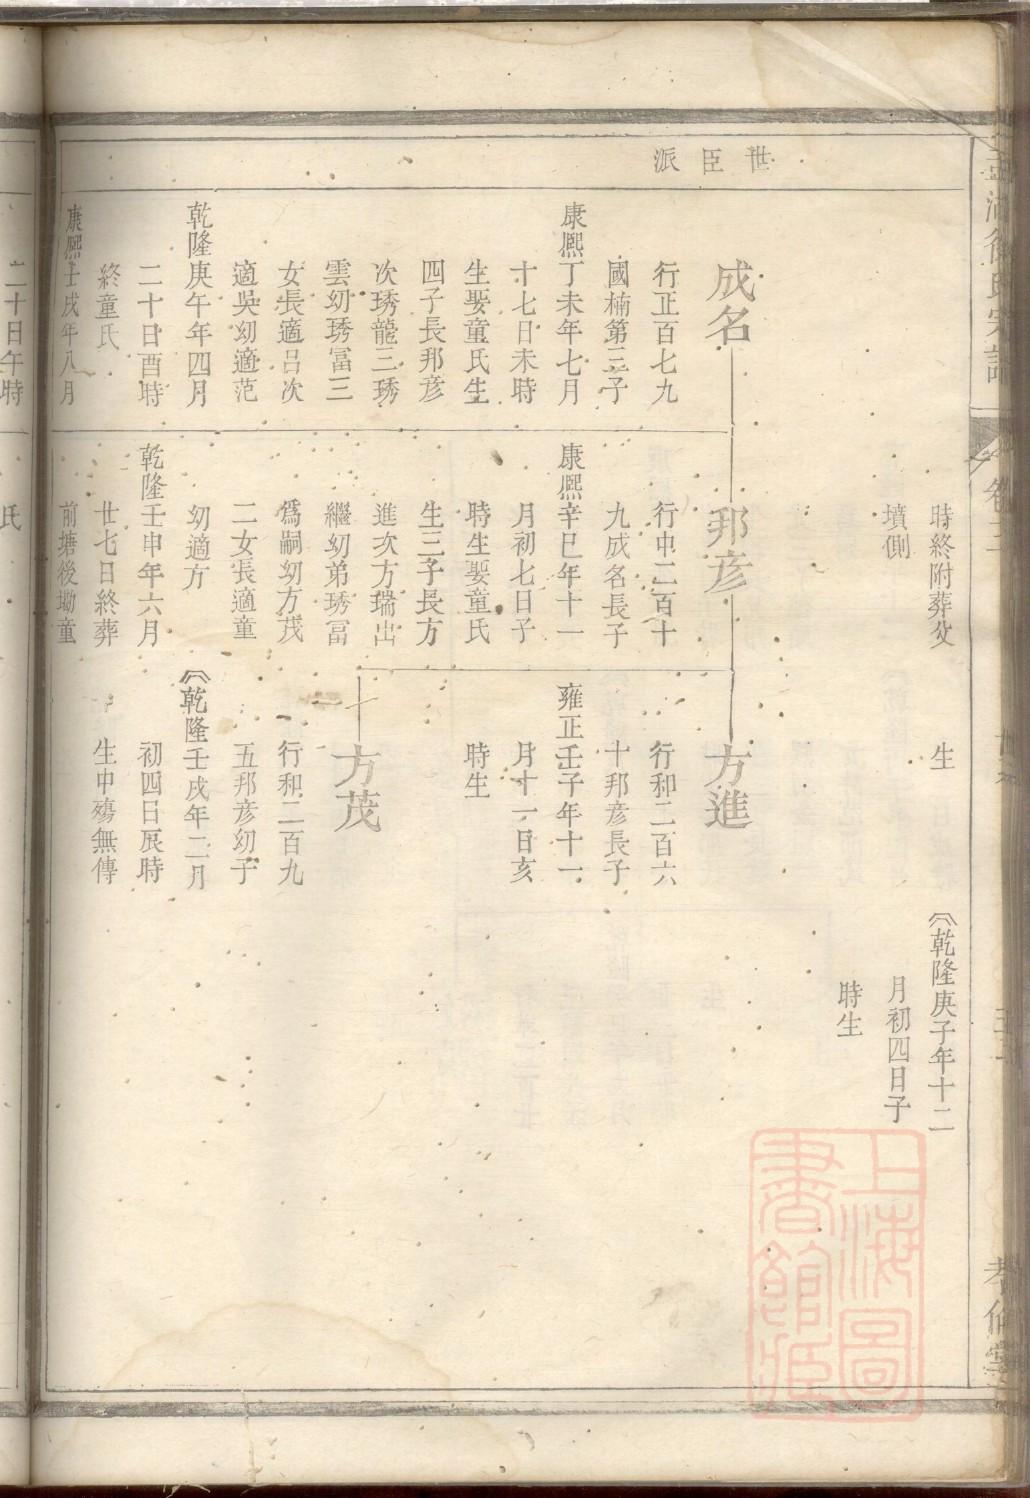 世臣派
時終附葬父
墳側
生
乾隆庚子年十二
月初四日子
時生
成名
行正百七九
國楠第三子
康熈丁未年七月
十七日未時
生娶童氏生
四子長邦彦
次琇龍三琇
雲㓜琇冨三
女長適吕次
適吳㓜適范
乾隆庚午年四月
二十日酉時
終童氏
康熈壬戌年八月
二十日午時
邦彦
行中二百十
九成名長子
康熈辛巳年十一
月初七日子
時生娶童氏
生三子長方
進次方瑞出
繼㓜弟琇冨
爲嗣㓜方茂
二女長適童
㓜適方
乾隆壬申年六月
廿七日終葬
前塘後坳童
氏
方進
行和二百六
十邦彦長子
雍正壬子年十一
月十一日亥
時生
方茂
行和二百九
五邦彦㓜子
乾隆壬戌年二月
初四日辰時
生中殤無傳
上海圖
書館藏